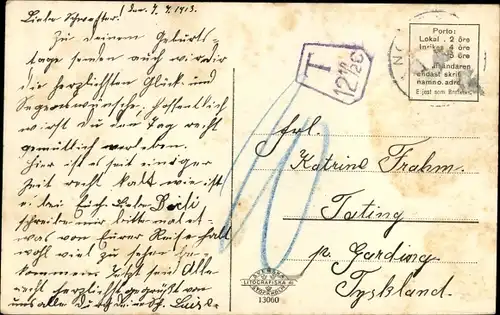 Liebe Schwester! Den 7. 4. 1913.
Zu deinem Geburts-
tage senden auch wir dir
die herzlichsten Glück und
Segenswünsche, hoffentlich
wirst du den Tag recht
gemütlich verleben.
Hier ist es seit einiger
Zeit recht kalt wie ist
es bei Euch. Liebe
schreibe mir bitte
was von Eurer Reise
wohl viel zu sehen
kommen. Jetzt seit Alle
recht herzlichst gegrüsst von
uns alle
T
12½ C
10
Porto:
Lokal . 2 öre
Inrikes 4 öre
öre
endast skrif
namn o. adr.
Ej ost som
Frl.
Katrine Frahm.
Tating
p. Garding
Tyskland.
LITOGRAFISKA
13060